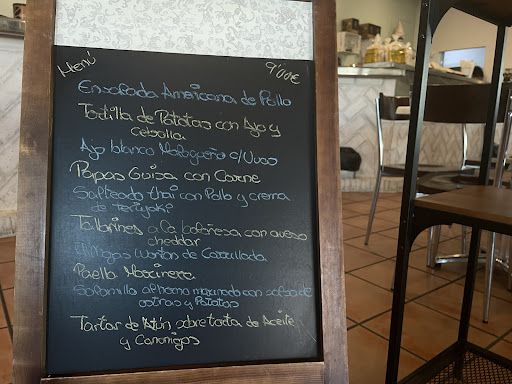 Menú 9'00€
Ensalada Americana de Pollo
Tortilla de Patatas con Ajo y
cebolla
Ajo blanco Malagueño c/ Uvas
Papas Guisa con Carne
Salteado thai con Pollo y crema
de Teriyaki
Tallarines a la boloñesa con queso
cheddar
Wonton de
Paella Marinera
al horno marinado con salsa de
ostras y Patatas
Tartar de Atún sobre torta de Aceite
y Canonigos